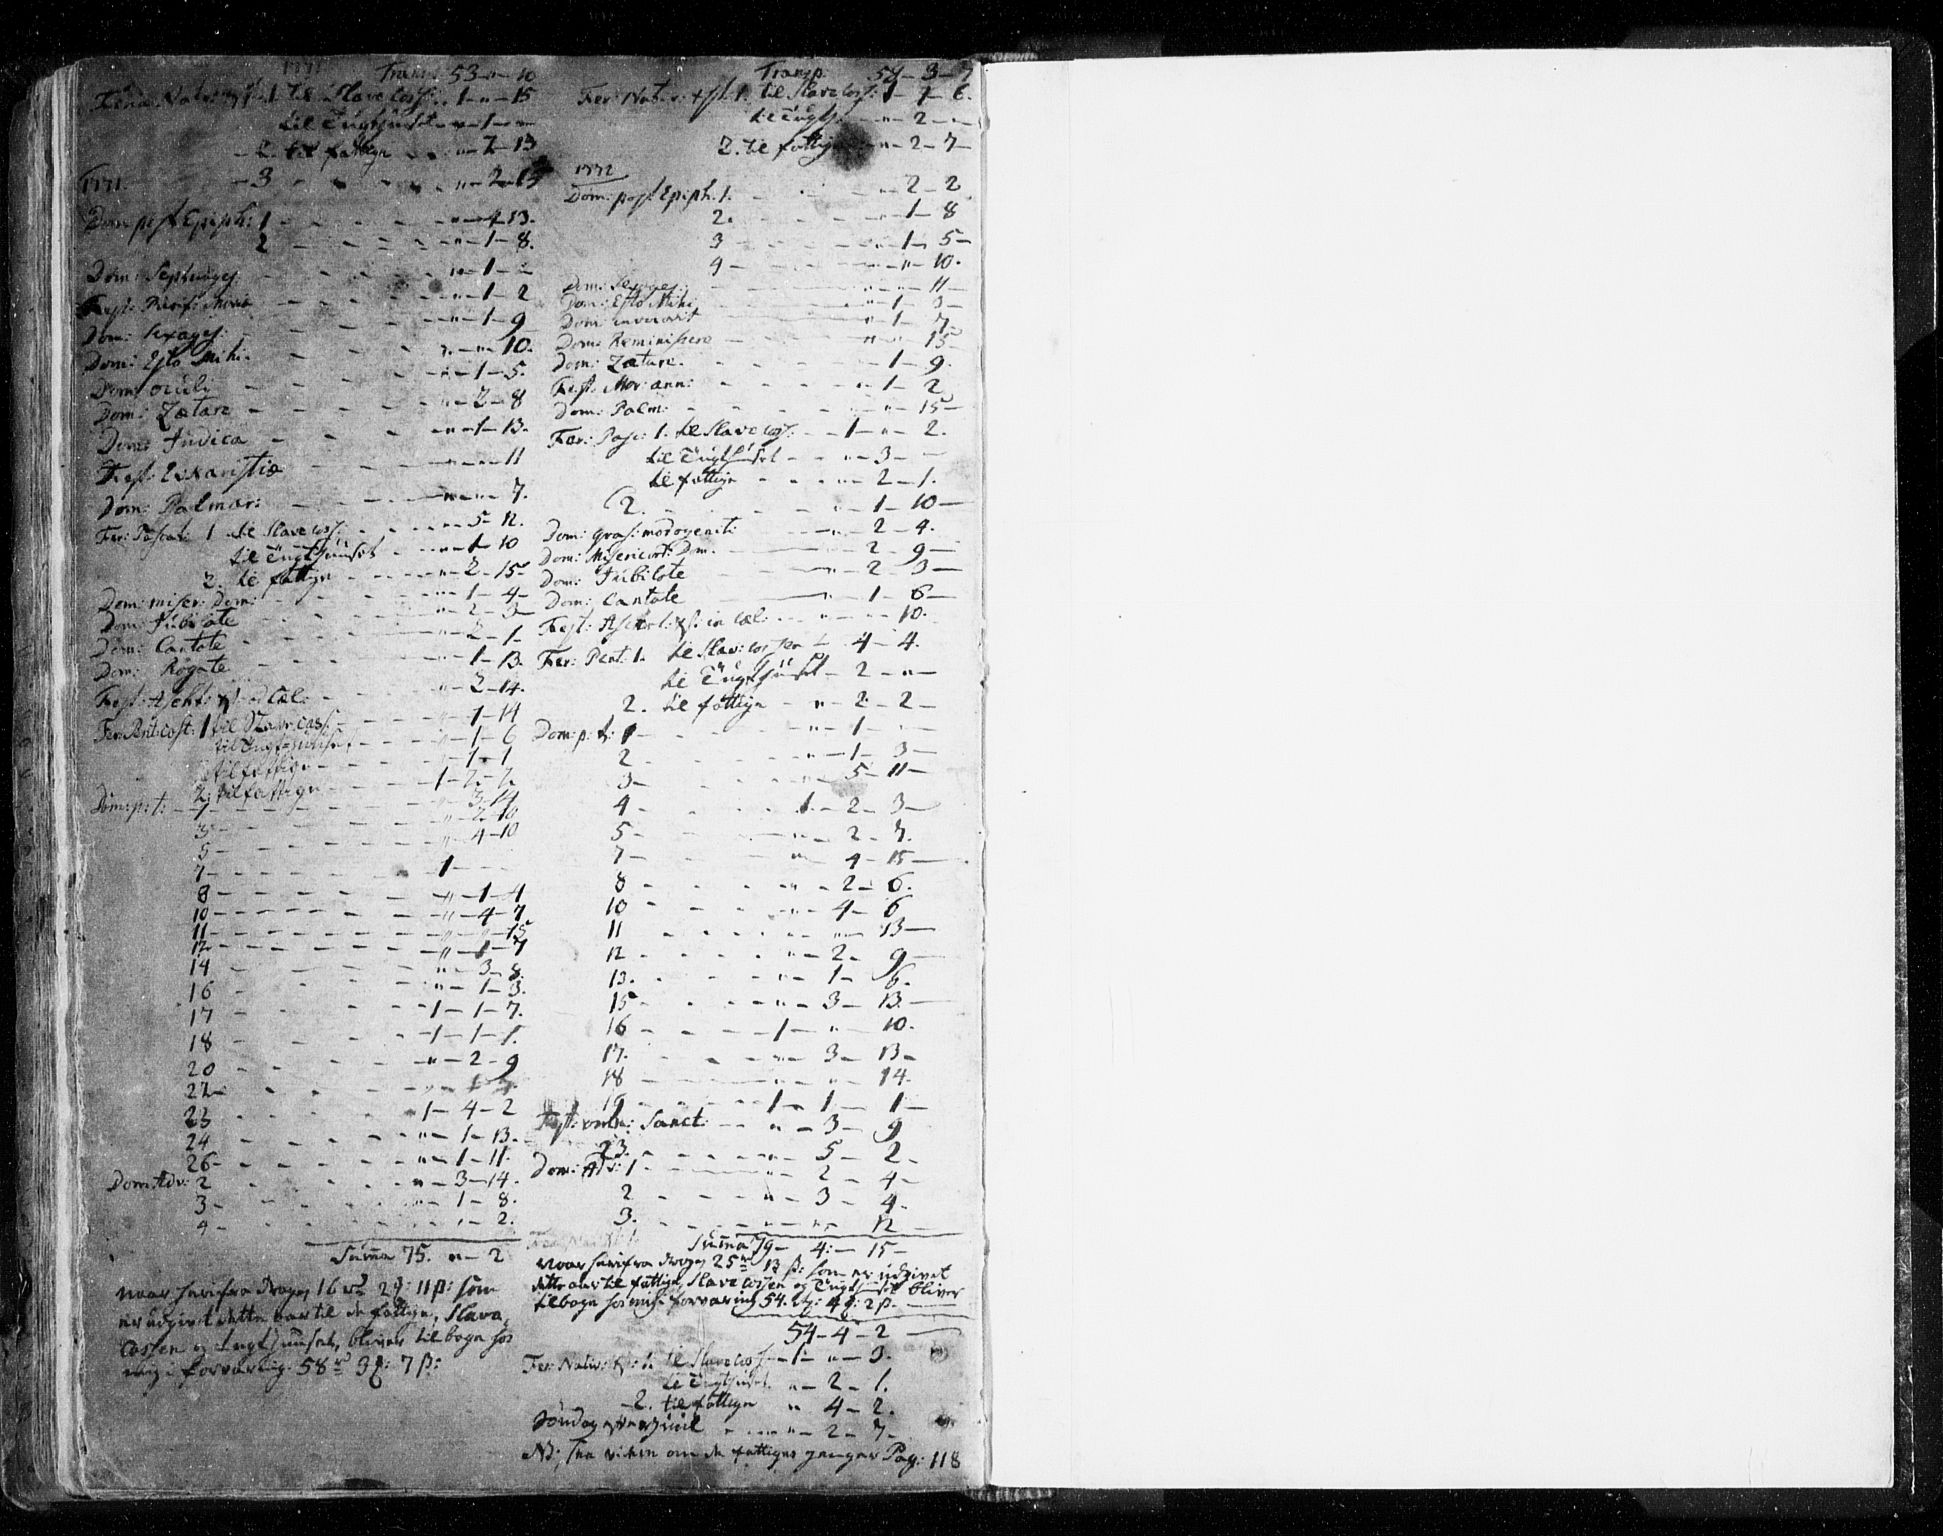 1771
Transp. 53 - " - 10
Feria Nativ: Xsti 1 til Slave Cass: - 1 - " - 15
til Tugthuuset - " - 1 - "
2. til fattige - - " - 2 - 13
1771. - 3 - - - " - 2 - 13
Dom: post Epiph: 1 - - - " - 4 - 13.
2 - - - " - 1 - 8.
Dom: Septuages - - - " - 1 - "
Fest: Purif: Mariæ - - - " - 1 - 2
Dom: Sexages: - - - " - 1 - 9
Dom: Esto Mihi - - - " - " - 10.
Dom: Oculi - - - " - 1 - 5.
Dom: Lætare - - - " - 2 - 8
Dom: Judica - - - " - 1 - 13.
Fest: - - - " - " - 11
Dom: Palmar: - - - " - " - 7.
Fer: Paschat: 1 til Slave Cass: - - " - 5 - 12.
til Tugthuuset - - " - 1 - 10
2. til fattige - - " - 2 - 15
Dom: Miser: Dom: - - - " - 1 - 4
Dom: Jubilate - - - " - 2 - 3
Dom: Cantate - - - " - 2 - 1
Dom: Rogate - - - " - 1 - 13.
Fest: Ascens: Xsti - Cæl: - - " - 2 - 14.
Fer: Penticost: 1 til Slave Cass: - - " - 1 - 14
til Tugthuuset - - " - 1 - 6
til fattige - - - 1 - 1
2. til fattige - - 1 - 2 - 2.
Dom: p: t: 1 - - - " - 3 - 14
3 - - - " - 2 - 10
5 - - - " - 4 - 10
7 - - - 1 - -
8 - - - " - 1 - 4
10 - - - " - 4 - 7
11 - - - " - " - 15
12 - - - " - 1 - 7
14 - - - " - 3 - 8.
16 - - - " - 1 - 3.
17 - - - 1 - 1 - 7.
18 - - - 1 - 1 - 1.
20 - - - " - 2 - 9
22 - - - " - 1
23 - - - 1 - 4 - 2
24 - - - " - 1 - 13.
26 - - - " - 1 - 11.
Dom: Adv: 2 - - - " - 3 - 14.
3 - - - " - 1 - 8.
4 - - - " - " - 2.
Summa 75. " - 2
naar herifra drages 16 rd 2 ₰: 11 ß: som
er udgivet dette aar til de fattige, Slave
Cassen og Tugthuuset, bliver tilbage hos
mig i forvaring 58 rd 3 ₰: 7 ß:
Transp. 58 - 3 - 7
Fer: Nativ: Xsti 1. til Slave Cass: 1 - 1 - 6.
til Tugth: - " - 2 - "
2. til fattige - " - 2 - 7
1772
Dom: post Epiph. 1. - - " - 2 - 2
2. - - - " - 1 - 8
3 - - - " - 1 - 5
4 - - - " - " - 10.
Dom: Sexages: - - - " - " - 11
Dom: Esto Mihi - - - " - 1 - 3
Dom: Invocavit - - - " - 1 - 7
Dom: Reminiscere - - - " - " - 15
Dom: Lætare. - - - " - 1 - 9.
Fest: Mar: ann: - - - " - 1 - 2
Dom: Palm: - - - " - " - 15
Fer: Pasc: 1. til Slave Cass: - - 1 - " - 2.
til Tugthuuset - - " - 3 -
til fattige - - " - 2 - 1.
2. - - - " - 1 - 10
Dom: Quasimodogeniti - - " - 2 - 4.
Dom: Misericord: Dom. - - " - 2 - 9
Dom: Jubilate - - " - 2 - 3
Dom: Cantate - - " - 1 - 6
Fest: Ascens: Xsti: in Cæl: - - " - " - 10.
Fer: Pent: 1. til Slave Cassen - 4 - 4.
til Tugthuuset - 2 - "
2. til fattige - " - 2 - 2
Dom: p: t: 1 - - - " - 1 -
2 - - - " - 1 - 3
3 - - - 5 - 11
4 - - - 1 - 2 - 3
5 - - - " - 2 - 7.
7 - - - " - 4 - 15
8 - - - " - 2 - 6.
10 - - - " - 4 - 6
11 - - - " - " - 13
12 - - - " - 2 - 9
13. - - - " - 1 - 6.
15 - - - " - 3 - 13.
16 - - - 1 - " - 10.
17. - - - " - 3 - 13
18 - - - " - " - 14.
19 - - - 1 - 1 - 1
Fest: omn: Sanct: - - " - 3 - 9
23. - - - " - 5 - 2
Dom: Adv: 1 - - - " - 2 - 4
2 - - - " - 3 - 4.
3. - - - " - " - 12
Summa 79 - 4: - 15
naar herifra drages 25 rd 13 ß: som er udgivet
dette aar til fattige, Slave Cassen og Tugthuuset bliver
tilbage hos mig i forvaring 54. rd: 4 ₰: 2 ß.
54 - 4 - 2
Fer: Nativ: Xsti: 1. til Slave Cass: - 1 - " - 3.
til Tugthuuset " - 2 - 1.
2. til fattige " - 4 - 2.
Søndag efter Juul - - " - 2 - 7
NB: om de fattiges penger Pag: 118